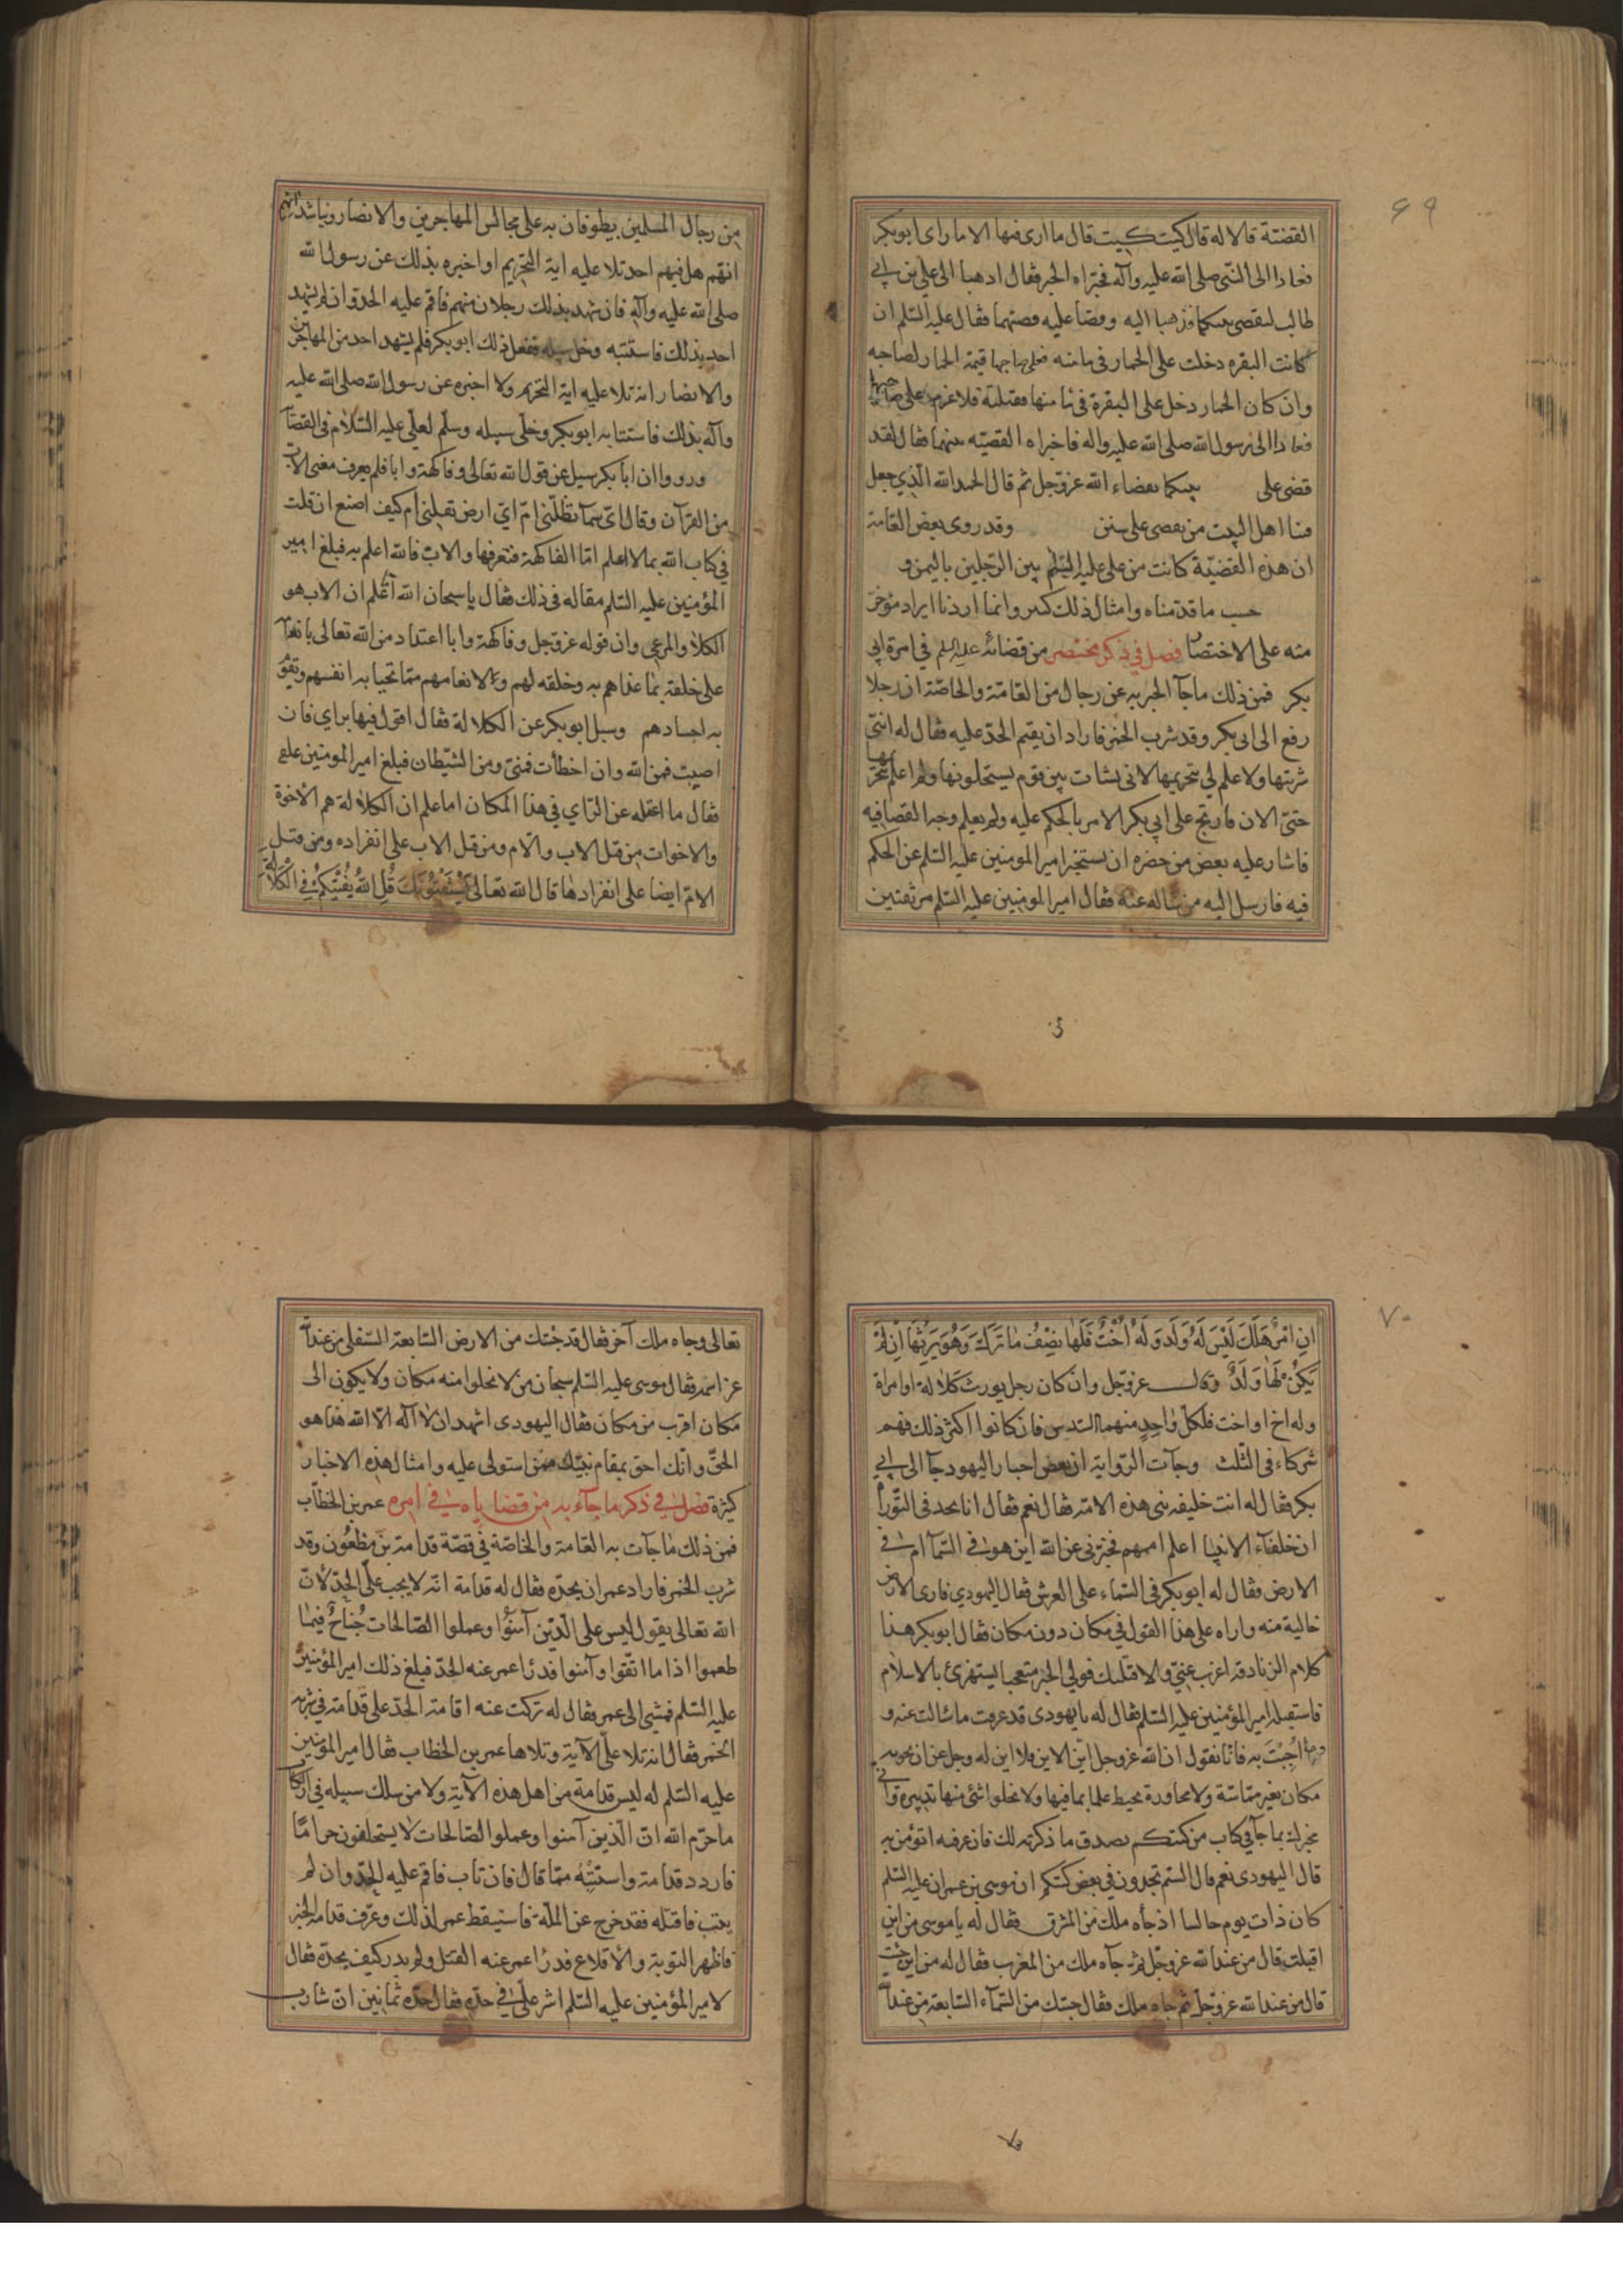 ٦٩
القضيّة قالا له قال كيت كيت قال ما ارى فيها الا ما راى ابو بكر
فعادا الى النبى صلى الله عليه وآله فخبّراه الخبر فقال اذهبا الى على بن ابى
طالب ليقضى بينكما فذهبا اليه وقصّا عليه قصتهما فقال عليه السّلم ان
كانت البقره دخلت على الحمار فى مامنه فعلى صاحبها قيمة الحمار لصاحبه
وان كان الحمار دخل على البقرة فى مامنها فقتلته فلا غرم على صاحبها
فعادا الى رسول الله صلى الله عليه واله فاخبراه القضيّه بينهما فقال لقد
قضى على بينكما بقضاء الله عزوجل ثم قال الحمد لله الّذي جعل
منا اهل البيت من يقضى على سنن وقد روى بعض العامة
ان هذه القضيّة كانت من على عليه السّلم بين الرّجلين باليمن و
حسب ما قدّمناه وامثال ذلك كثير وانما اردنا ايراد موجز
منه على الاختصا فصل في ذكر مختصر من قضائه عليه السلم فى امرة ابى
بكر فمن ذلك ما جآ الخبر به عن رجال من العامّة والخاصّة ان رجلا
رفع الى ابى بكر وقد شرب الخمر فاراد ان يقيم الحدّ عليه فقال له انني
شربتها ولا علم لي بتحريمها لانى نشات بين قوم يستحلونها ولم اعلم بتحريمها
حتى الان فارتج على ابي بكر الامر بالحكم عليه ولم يعلم وجه القضا فيه
فاشار عليه بعض من حضره ان يستخبر امير المومنين عليه السّلم عن الحكم
فيه فارسل اليه من ساله عنه فقال امير المومنين عليه السّلم مر ثقتين
من رجال المسلمين يطوفان به على مجالس المهاجرين والانصار ويناشدانهم
انهم هل فيهم احد تلا عليه اية التحريم او اخبره بذلك عن رسول الله
صلى الله عليه وآله فان شهد بذلك رجلان منهم فاقم عليه الحد وان لم يشهد
احد بذلك فاستتبه وخلّ سبيله ففعل ذلك ابو بكر فلم يشهد احد من المهاجرين
والانصار انه تلا عليه اية التحريم ولا اخبره عن رسول الله صلى الله عليه
وآله بذلك فاستتابه ابو بكر وخلّى سبيله وسلّم لعلى عليه السّلام فى القضآ
ورووا ان ابا بكر سيل عن قول الله تعالى وفاكهة وابا فلم يعرف معنى الابّ
من القرآن وقال اىّ سمآ تظلّنى ام اىّ ارض تقلنى ام كيف اصنع ان قلت
فى كتاب الله بما لا اعلم امّا الفاكهة فنعرفها والابّ فالله اعلم به فبلغ امير
المؤمنين عليه السّلم مقاله فى ذلك فقال ياسبحان الله أَعَلم ان الاب هو
الكلأ والمرعى وان قوله عزوجل وفاكهة وابا اعتداد من الله تعالى بانعآ
على خلقه بما غذاهم به وخلقه لهم ولانعامهم ممّا تحيا به انفسهم وتقو
به اجسادهم وسيل ابو بكر عن الكلالة فقال اقول فيها براي فان
اصبت فمن الله وان اخطأت فمنى ومن الشيطان فبلغ امير المومنين علع
فقال ما اغناه عن الرّاي في هذا المكان اما علم ان الكلالة هم الاخوة
والاخوات من قبل الاب والام ومن قبل الاب على انفراده ومن قبل
الامّ ايضا على انفرادها قال الله تعالى يَسْتَفْتُونَكَ قُلِ اللهُ يُفْتِيكُمْ فِي الْكَلَالَةِ
٧٠
اِنِ امْرُؤٌ هَلَكَ لَيْسَ لَهُ وَلَدٌ وَلَهُ اُخْتٌ فَلَهَا نِصْفُ مَا تَرَكَ وَهُوَ يَرِثُهَا اِنْ لَمْ
يَكُنْ لَهَا وَلَدٌ وقال عزوجّل وان كان رجل يورث كلالة او امراة
وله اخ او اخت فلكلّ واحدٍ منهما السّدس فان كانوا اكثر ذلك فهم
شركاء فى الثّلث وجآت الرّواية ان بعض احبار اليهود جآ الى ابى
بكر فقال له انت خليفه نبى هذه الامّه فقال نعم فقال انا نجد فى التّوراة
ان خلفآء الانبيا اعلم اممهم فخبّرنى عن الله اين هو فى السّمآ ام فى
الارض فقال له ابو بكر فى السّماء على العرش فقال اليهودي فارى الارض
خالية منه واراه على هذا القول فى مكان دون مكان فقال ابو بكر هذا
كلام الزنادقه اعزب عنى والا قتلتك فولى الحبر متعجبا يستهزئ بالاسلام
فاستقبله امير المؤمنين عليه السّلم فقال له يا يهودى قد عرفت ما سالت عنه و
اُجِبْتَ به فانا نقول ان الله عزوجل ايّن الاين فلا اين له وجل عن ان يحويه
مكان بغير مماسّة ولا مجاورة يحيط علما بما فيها ولا يخلوا شئ منها تدبيره وانى
مخبرك بما جآ في كتاب من كتبكم يصدق ما ذكرته لك فان عرفه اتؤمن به
قال اليهودى نعم قال الستم تجدون في بعض كتبكم ان موسى بن عمران عليه السّلم
كان ذات يوم جالسا اذ جآه ملك من المشرق فقال له يا موسى من اين
اقبلت قال من عند الله عزوجلّ ثمّ جآه ملك من المغرب فقال له من اين جئت
قال من عند الله عزوجلّ ثم جاه ملك فقال جئتك من السّمآء السّابعة من عند الله
تعالى وجاه ملك آخر فقال قد جئتك من الارض السّابعة السّفلى من عند الله
عز اسمه فقال موسى عليه السّلم سبحان من لا يخلوا منه مكان ولا يكون الى
مكان اقرب من مكان فقال اليهودى اشهد ان لا اله الّا الله هذا هو
الحقّ وانّك احق بمقام نبيّك ممّن استولى عليه وامثال هذه الاخبار
كثيرة فصل في ذكر ما جآء به من قضاياه فى امره عمر بن الخطاب
فمن ذلك ما جآت به العامة والخاصّة في قصّة قدامة بن مظعون وقد
شرب الخمر فاراد عمر ان يحدّه فقال له قدامة انه لا يجب علّى الحدّ لانّ
الله تعالى يقول ليس على الّذين آمنُوا وعملوا الصّالحات جُنَاحٌ فيما
طعموا اذا ما اتّقوا وآمنوا فدرا عمر عنه الحدّ فبلغ ذلك امير المؤمنين
عليه السّلم فمشى الى عمر فقال له تركت عنه اقامة الحدّ على قدامة في شربه
الخمر فقال انه تلا علىّ الآية وتلاها عمر بن الخطاب فقال امير المومنين
عليه السّلم له ليس قدامة من اهل هذه الآية ولا من سلك سبيله فى ارتكا
ما حرّم الله انّ الّذين آمنوا وعملوا الصّالحات لا يستحلّون حرامًا
فاردد قدامة واستتبه ممّا قال فان تاب فاقم عليه الحدّ وان لم
يتب فاقتله فقد خرج عن الملّة فاستيقظ عمر لذلك وعرّف قدامه الخبر
فاظهر التوبة والاقلاع فدرا عمر عنه القتل ولم يدر كيف يحدّه فقال
لامير المؤمنين عليه السّلم اشر علىّ فى حدّه فقال حدّه ثمانين ان شارب